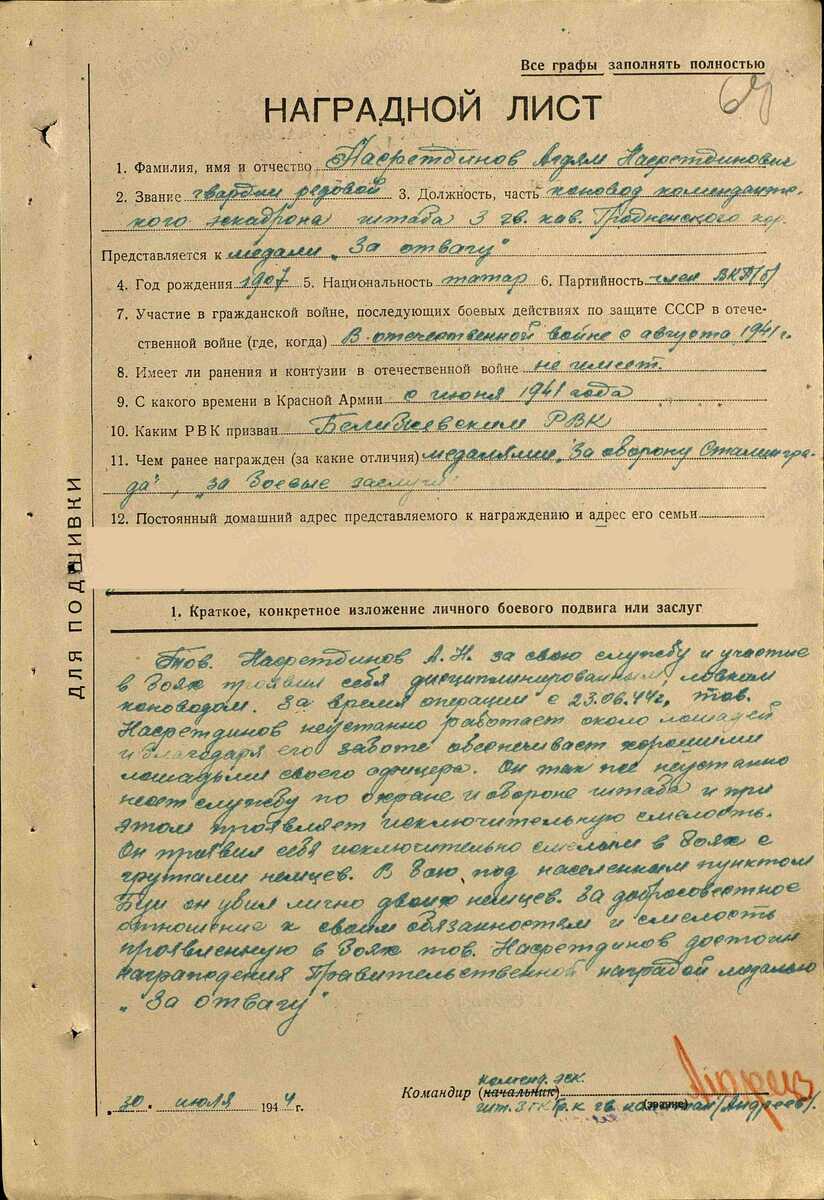 Все графы заполнять полностью
НАГРАДНОЙ ЛИСТ
1. Фамилия, имя и отчество Насретдинов Агдям Насретдинович
2. Звание гвардии рядовой 3. Должность, часть коновод комендантс-
кого эскадрона штаба 3 гв. кав. Гродненского кор.
Представляется к медали „За отвагу"
4. Год рождения 1907 5. Национальность татар 6. Партийность член ВКП(б)
7. Участие в гражданской войне, последующих боевых действиях по защите СССР в отече-
ственной войне (где, когда) В отечественной войне с августа 1941 г.
8. Имеет ли ранения и контузии в отечественной войне не имеет.
9. С какого времени в Красной Армии с июня 1941 года
10. Каким РВК призван Белибеевским РВК
11. Чем ранее награжден (за какие отличия) медалями „За оборону Сталингра-
да", „за боевые заслуги"
12. Постоянный домашний адрес представляемого к награждению и адрес его семьи
ДЛЯ ПОДШИВКИ
1. Краткое, конкретное изложение личного боевого подвига или заслуг
Тов. Насретдинов А.Н. за свою службу и участие
в боях проявил себя дисциплинированным, ловким
коноводом. За время операции с 23.06.44г. тов.
Насретдинов неустанно работает около лошадей
и благодаря его заботе обеспечивает хорошими
лошадьми своего офицера. Он так же неустанно
несет службу по охране и обороне штаба и при
этом проявляет исключительную смелость.
Он проявил себя исключительно смелым в боях с
группами немцев. В бою под населенным пунктом
Буи он убил лично двоих немцев. За добросовестное
отношение к своим обязанностям и смелость
проявленную в боях тов. Насретдинов достоин
награждения Правительственной наградой медалью
„За отвагу"
Командир (начальник) коменд. эск.
шт. 3 гк Гр. к гв. капитан (звание) /Андреев/.
30. июля 1944 г.